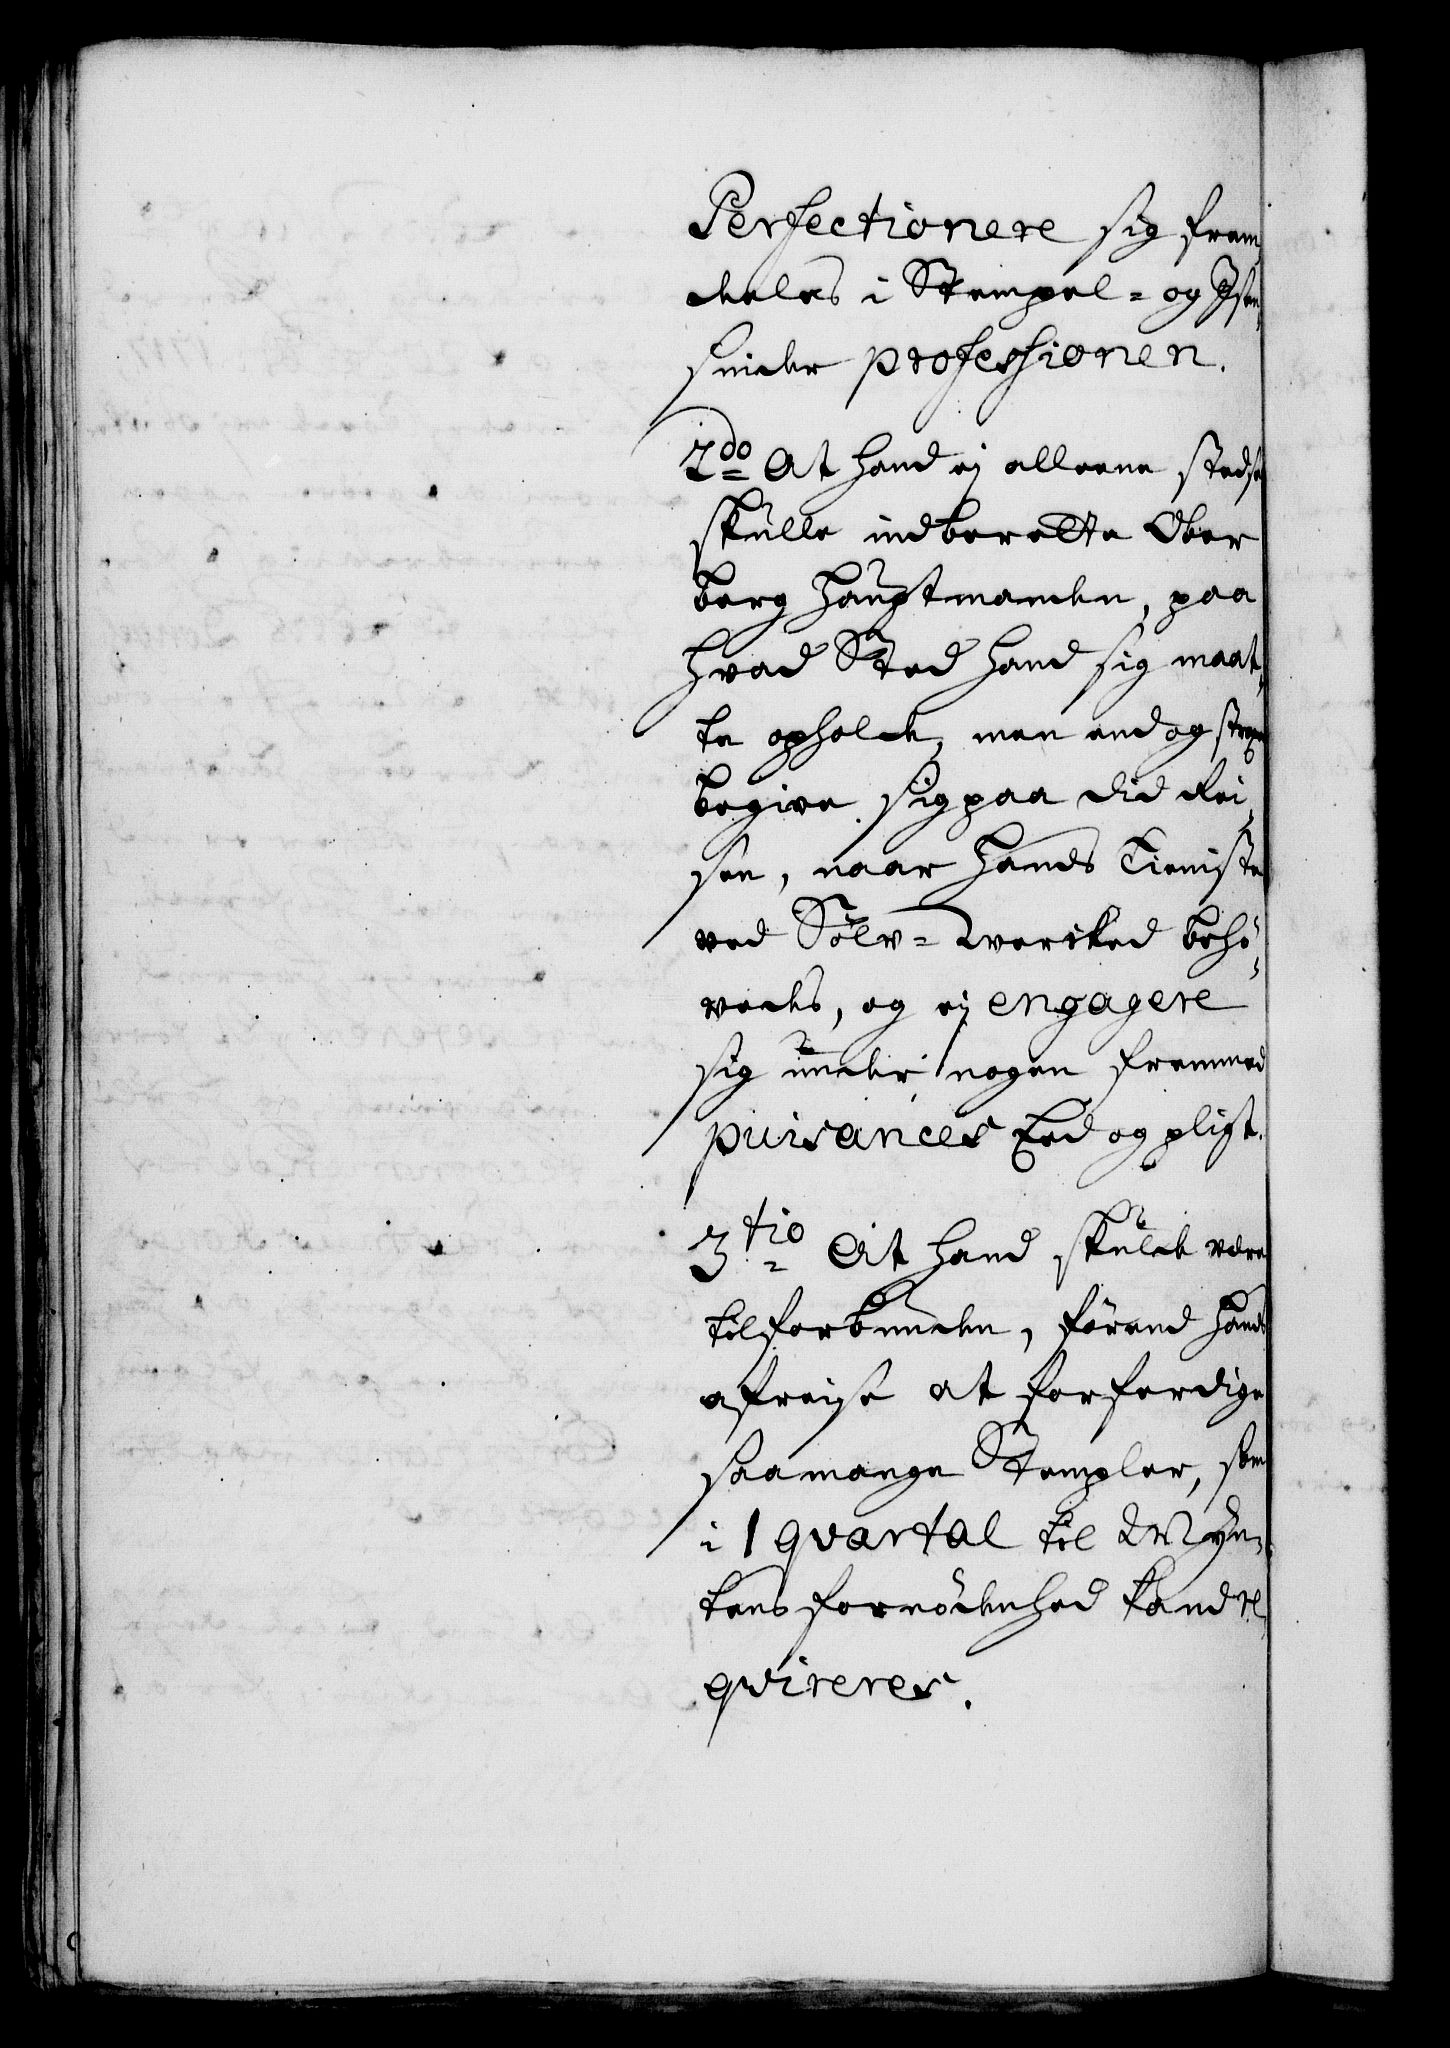 Perfectionere sig frem¬
deles i Stempel- og Jsen¬
snider professionen.
2do At hand ej alleene stedse
skulle indberette Ober
berg Hauptmanden, paa
hvad Sted hand sig maat¬
te opholde, men end og strax
begive sig paa did Rei¬
sen, naar hands Tieniste
ved Sölv-Wercked behö¬
vedes, og ej engagere
sig under nogen fremmed
puisances Eed og pligt.
3tio At hand skulde være
tilforbunden, förend hands
afreise at forferdige
saa mange Stempler, som
i 1 qvartal til Myn¬
tens fornödenhed kand re¬
qvireres.